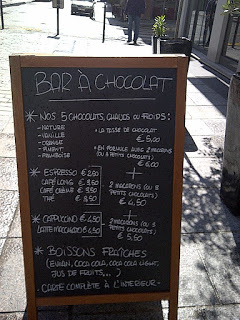 BAR À CHOCOLAT
* NOS 5 CHOCOLATS, CHAUDS OU FROIDS :
- NATURE
- VANILLE
- ORANGE
- PIMENT
- FRAMBOISE
• LA TASSE DE CHOCOLAT
€ 5,00
• EN FORMULE AVEC 2 MACARONS
(OU 3 PETITS CHOCOLATS)
€ 6,00
* ESPRESSO € 2,50
CAFÉ LONG € 3,50
CAFÉ CRÈME € 3,50
THÉ € 3,50
+
2 MACARONS (OU 3
PETITS CHOCOLATS)
€ 4,50
* CAPPUCCINO € 4,50
LATTE MACCHIATO € 4,50
+
2 MACARONS (OU 3
PETITS CHOCOLATS)
€ 5,50
* BOISSONS FRAÎCHES
(EVIAN, COCA COLA, COCA COLA LIGHT,
JUS DE FRUITS,...)
- CARTE COMPLÈTE À L'INTERIEUR -